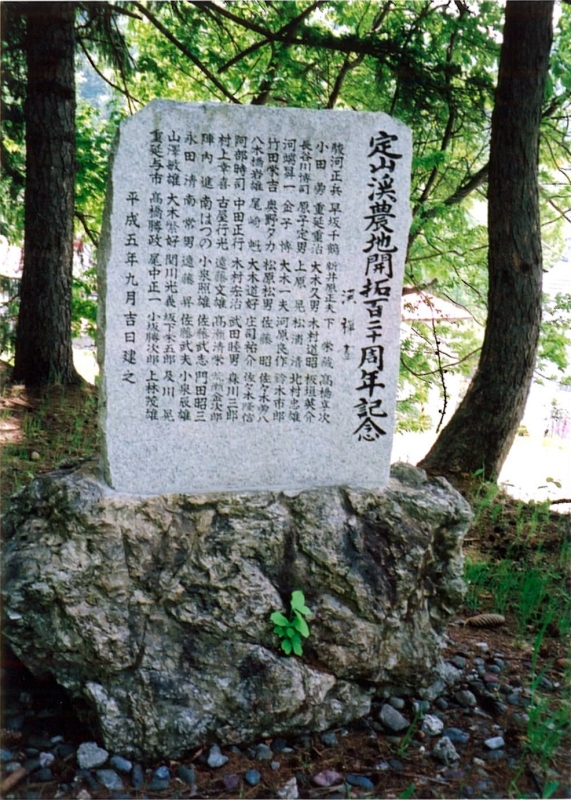 定山渓農地開拓百二十周年記念
駿河正兵 早坂千鶴 新井原正夫 下 栄蔵 高橋享次
小田 勇 重延重治 大木久男 木村道昭 板垣英介
長谷川博司 原子定男 上原 晃 松浦 清 北村忠雄
河端算一 金子 博 大木一夫 河原良作 鈴木市郎
竹田栄吉 奥野タカ 松原松男 佐藤 昭 佐々木勇八
八木橋岩雄 尾崎 大木道好 庄司祐介 佐々木隆信
阿部時司 中田正行 木村安治 武田睦男 森川三郎
村上幸喜 古屋行光 遠藤文雄 高瀬清栄 金次郎
陣内 進 南はつの 小泉照雄 佐藤武志 門田昭三
永田 清 南 常男 遠藤 昇 佐藤武夫 小泉辰雄
山澤敏雄 大木紫好 関川光義 坂下栄五郎 及川 晃
重延与市 高橋勝政 尾中正一 小坂勝次郎 上林茂雄
平成五年九月吉日建之